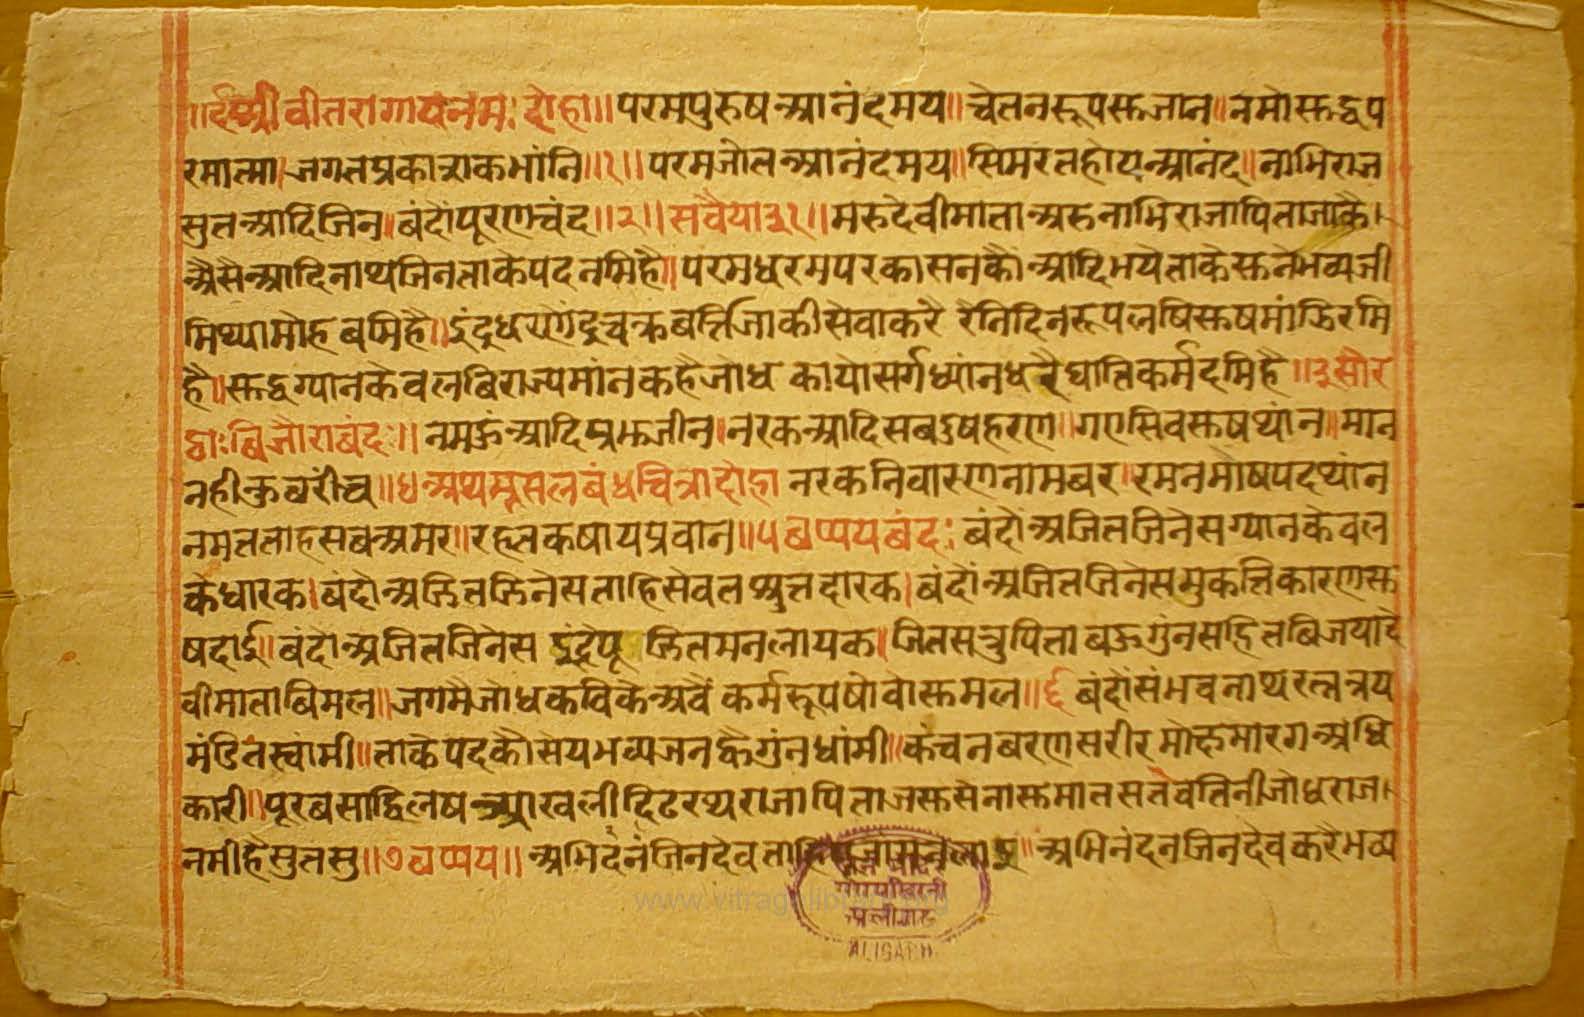 ॥र्द॥श्रीवीतरागायनमः दोहा॥ परमपुरुषआनंदमय॥ चेतनरूपसुजान॥ नमोसुद्धप
रमात्मा॥जगतप्रकासकभांनि॥१॥ परमजोतआनंदमय॥ सिमरतहोयआनंद॥ नाभिराज
सुतआदिजिन॥ बंदौंपूरणचंद॥२॥ सवैया३१॥ मरुदेवीमाताअरुनाभिराजापिताजाकै।
अैसैआदिनाथजिनताकेपदनमिहै॥ परमधरमपरकासनकौंआदिभयेताकेसुनेभव्यजी
मिथ्यामोहबमिहै॥ इंद्रधरणेंद्रचक्रबर्त्तिजाकीसेवाकरै रैनिदिनरूपलषिसुषमांझिरमि
है॥ सुद्धग्यानकेवलबिराज्यमांनकहैजोध कायोसर्गध्यांनधरैघातिकर्मदमिहै॥३सोर
ठाःबिजौराबंदः॥ नमूऊंआदिप्रभजीन॥नरकआदिसबदुषहरण॥ गएसिवसुषथांन॥मान
नहीक्रुधरींच॥४अथमूसलबंधचित्रादोहा नरकनिवारणनामबर॥रमनमोषपदथांन
नमतताहसबअमर॥रहतकषायप्रवान॥५छप्पयबंदः बंदौंअजितजिनेसग्यानकेवल
केधारक।बंदौंअजितजिनेसताहिसेवतश्रुतदारक।बंदौंअजितजिनेसमुकत्तिकारणसु
षदाई॥बंदौंअजितजिनेस इंद्रपू जितमनलायक॥ जितसत्रुपिताबऊगुंनसहितबिजयादे
वीमाताबिमल॥जगमैजोधकविकेअवै कर्मरूपषोवोसुमल॥६ बंदौंसंभवनाथरत्नत्रय
मंडितस्वांमी॥ताकेपदकौसेयभव्यजनकैगुंनधांमी॥कंचनबरणसरीरमोक्षमारगअधि
कारी॥पूरबसाठिलषआखलीदिढरथराजापिताजसुसैनासुमातसतैवेतिनीजोधराज।
नमीहैसुतसु॥७छप्पय॥ अभिदंनंजिनदेव अभिनंदनजिनदेवकरैभव्य
www.vitragelibrary.org
अलीगढ
ALIGARH